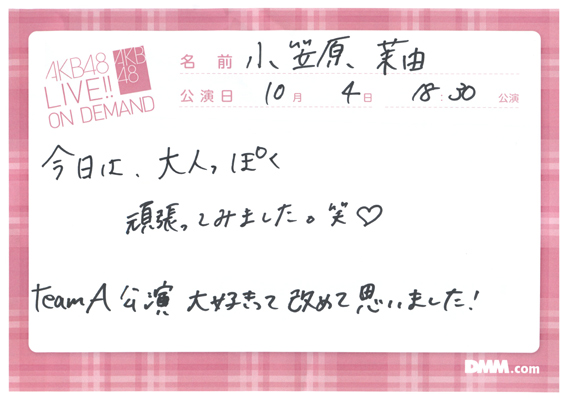 AKB48
LIVE!!
ON DEMAND
AKB
48
名前 小笠原 茉由
公演日 10月 4日 18:30 公演
今日は、大人っぽく
頑張ってみました。笑♡
teamA公演 大好きって改めて思いました!
DMM.com